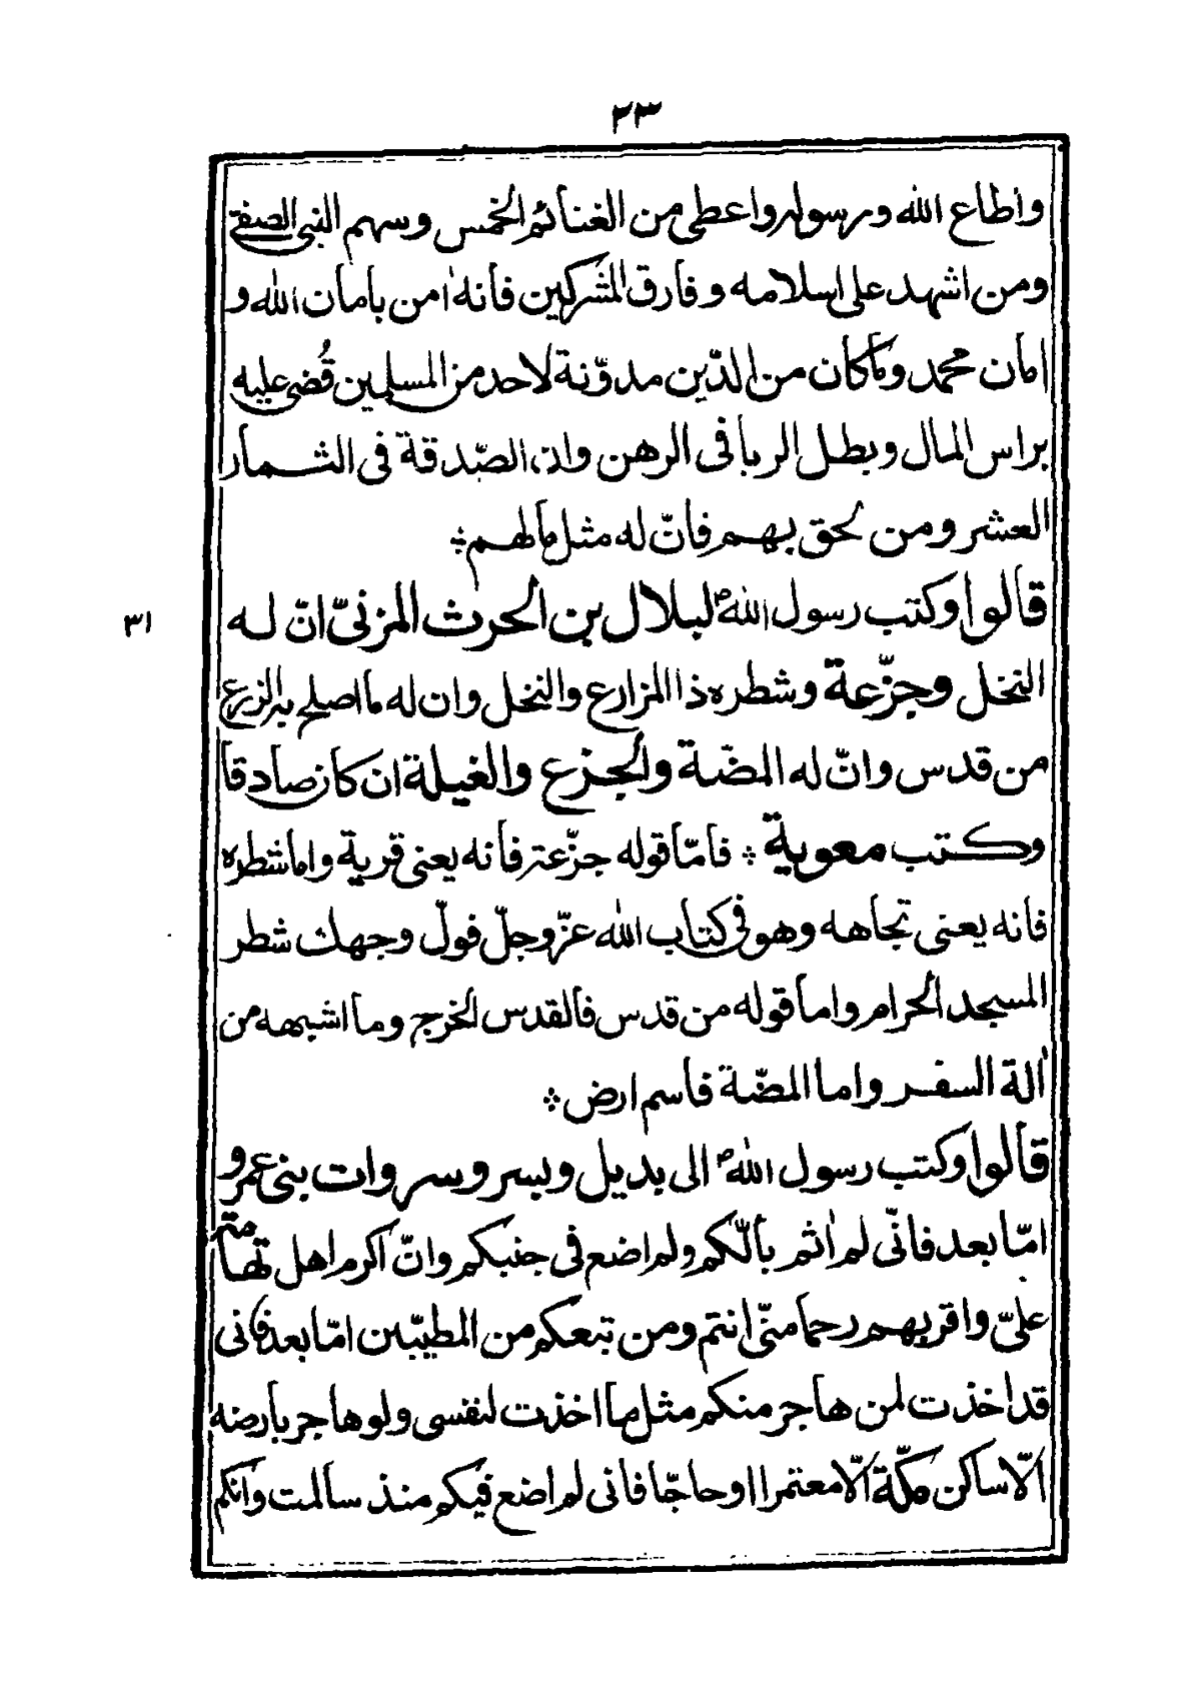 ٢٣
واطاع الله ورسوله واعطى من الغنائم الخمس وسهم النبى الصفى
ومن اشهد على اسلامه وفارق المشركين فانه اٰمن بامان الله و
امان محمد وما كان من الدّين مدوّنة لاحد من المسلمين قُضى عليه
براس المال وبطل الربا فى الرهن وان الصّدقة فى الثمار
العشر ومن لحق بهم فانّ له مثل ما لهم ؞
قالوا وكتب رسول اللهؐ لبلال بن الحرث المزنىّ انّ له
٣١
النخل وجزّعة وشطره ذا المزارع والنخل وان له ما اصلح به الزرع
من قدس وانّ له المضّة والجزع والغيلة ان كان صادقا
وكتب معوية ؞ فامّا قوله جزّعة فانه يعنى قرية واما شطره
فانه يعنى تجاهه وهو فى كتاب الله عزّ وجلّ فولّ وجهك شطر
المسجد الحرام واما قوله من قدس فالقدس الخرج وما اشبهه من
اٰلة السفر واما المضّة فاسم ارض ؞
قالوا وكتب رسول اللهؐ الى بديل وبسر وسروات بنى عمرو
امّا بعد فانّى لم اٰثم بالّكم ولم اضع فى جنبكم وانّ اكرم اهل تهامة
علىّ واقربهم رحما منّى انتم ومن تبعكم من المطيّبين امّا بعد فانى
قد اخذت لمن هاجر منكم مثل ما اخذت لنفسى ولو هاجر بارضه
الّا ساكن مكّة الّا معتمرا او حاجّا فانى لم اضع فيكم منذ سالمت وانكم